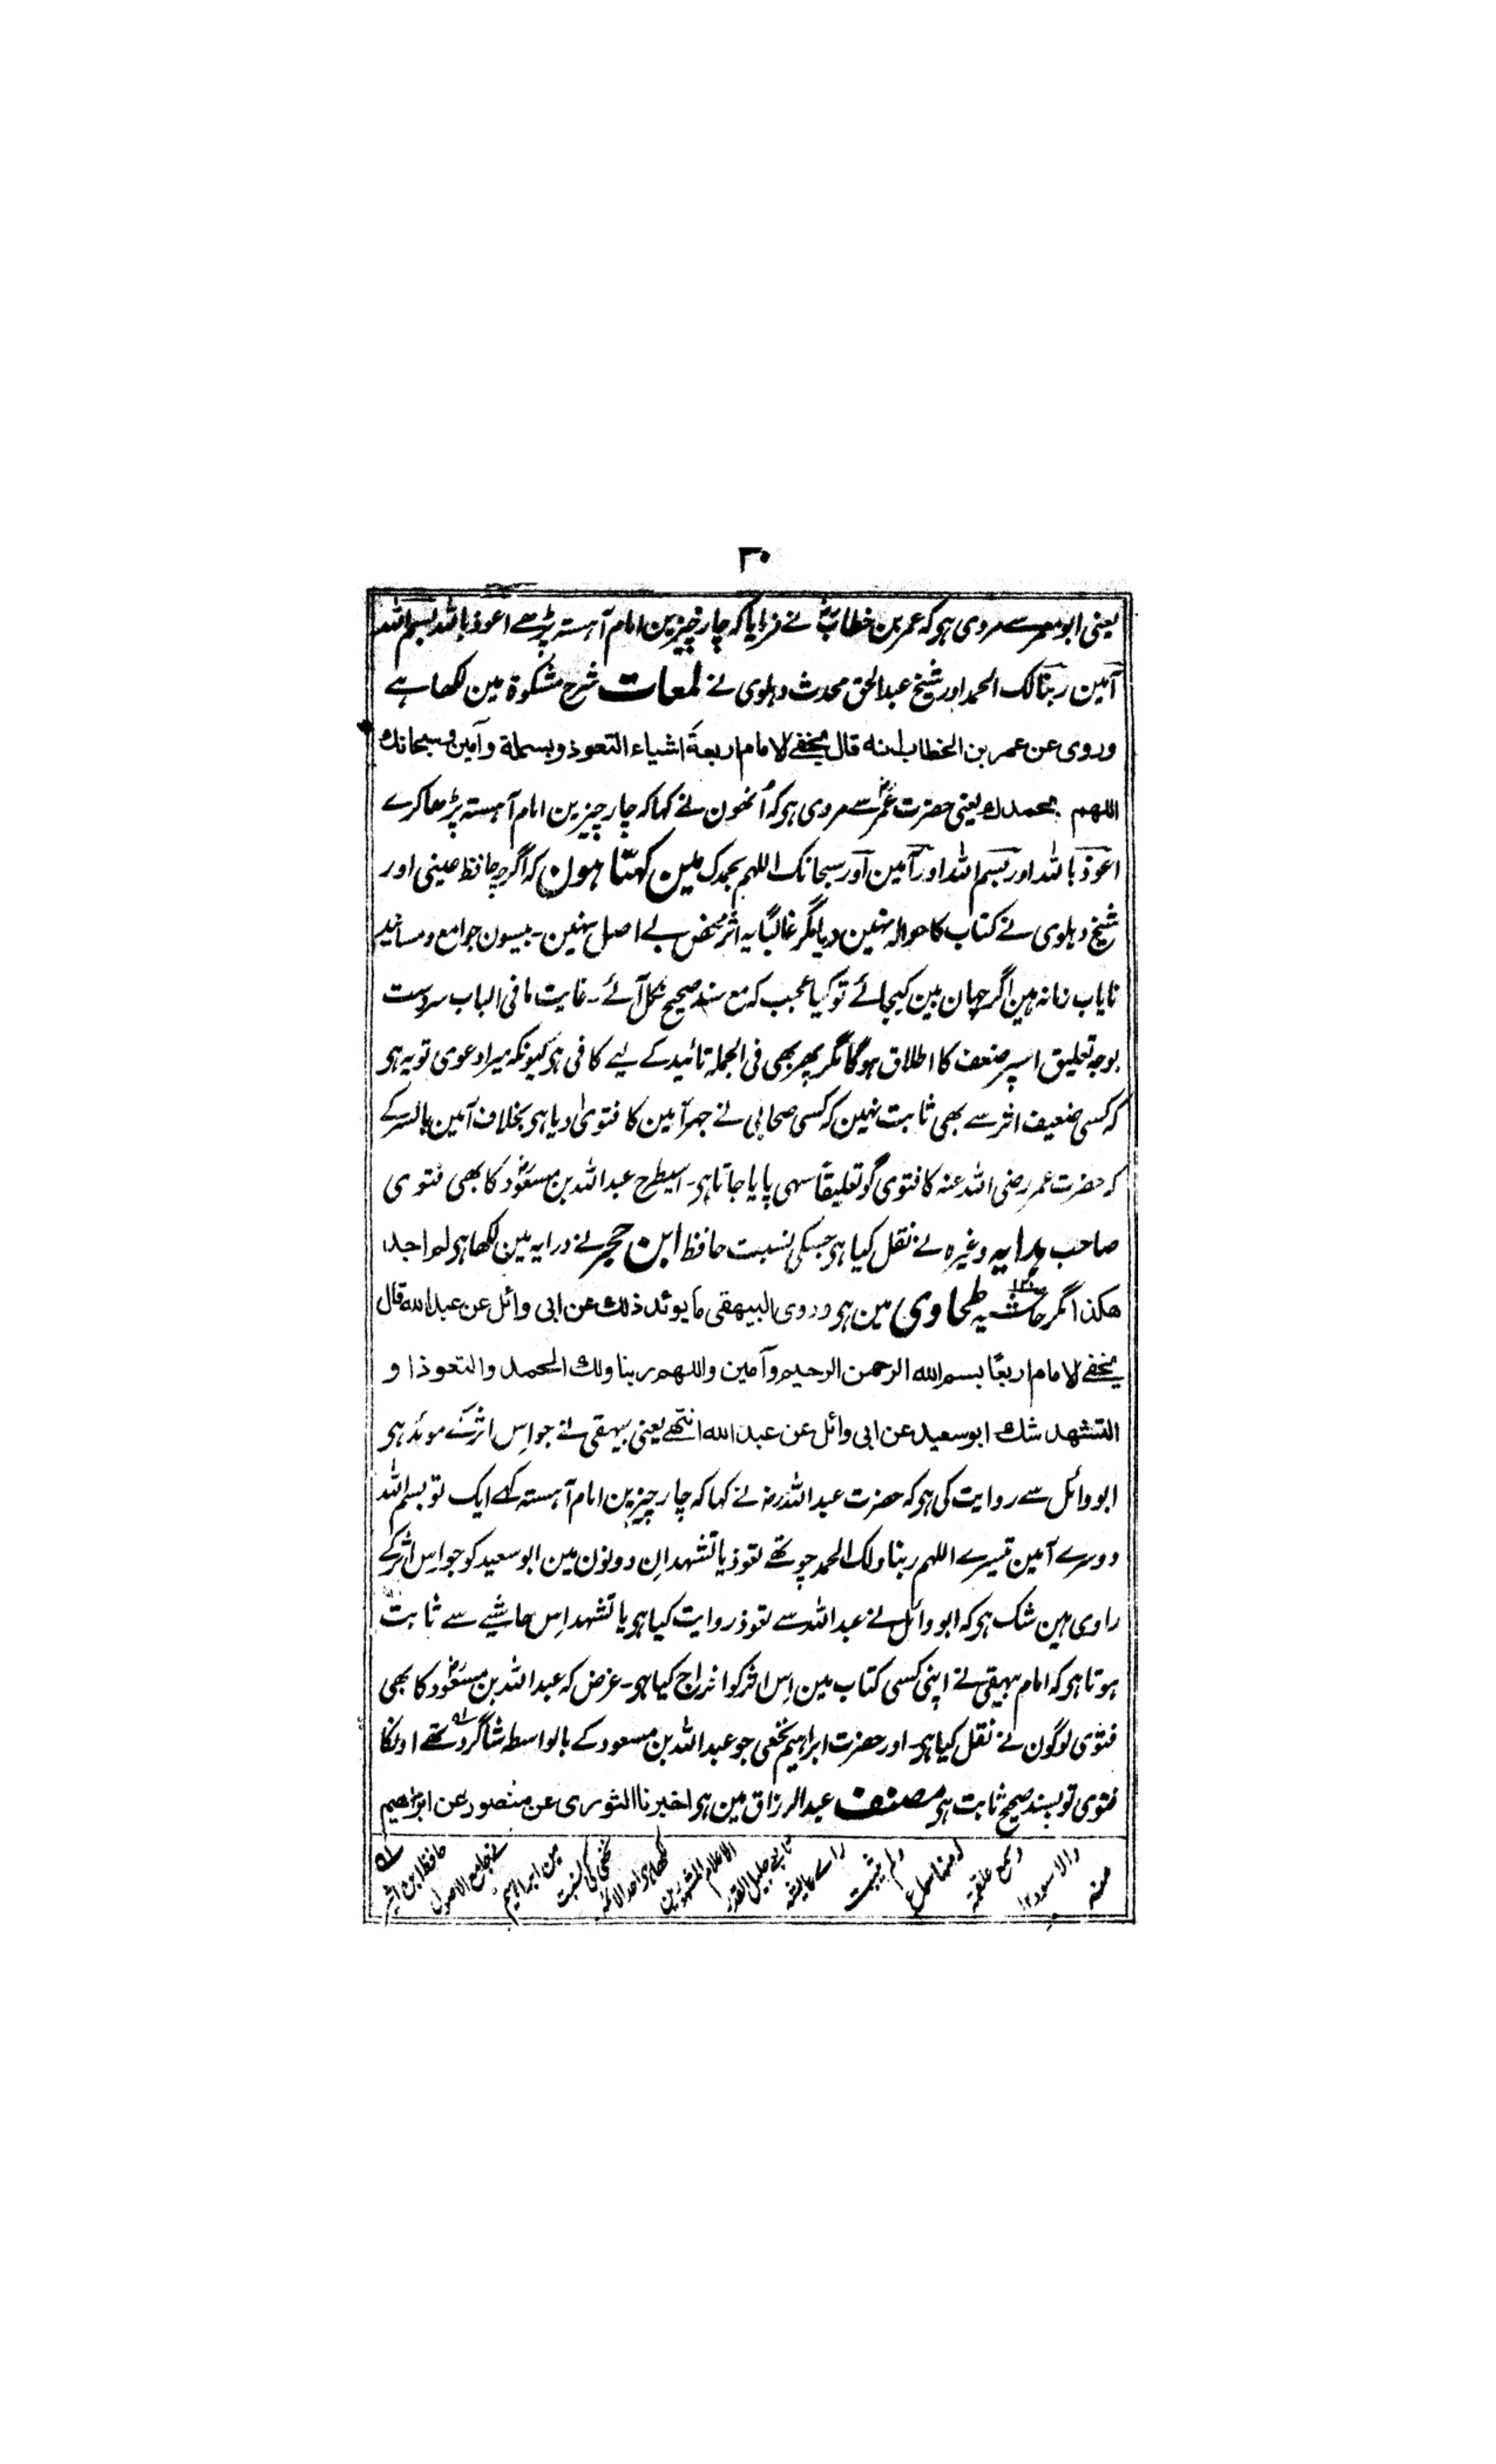 ۳۰
یعنی ابو معمر سے مروی ہو کہ عمر بن خطابؓ نے فرمایا کہ چار چیزین امام آہستہ پڑھے اعوذ باللہ بسم اللہ
آمین ربنا لک الحمد اور شیخ عبدالحق محدث دہلوی نے لمعات شرح مشکوٰۃ مین لکھا ہے
وروی عن عمر بن الخطاب انه قال یخفی الامام اربعة اشیاء التعوذ وبسملة وآمین وسبحانك
اللهم بحمدك یعنی حضرت عمرؓ سے مروی ہو کہ اُنھون نے کہا کہ چار چیزین امام آہستہ پڑھا کرے
اعوذ باللہ اور بسم اللہ اور آمین اور سبحانک اللہم بحمدک مین کہتا ہون کہ اگرچہ حافظ عینی اور
شیخ دہلوی نے کتاب کا حوالہ نہین دیا مگر غالباً یہ اثر محض بے اصل نہین۔ بیسون جوامع و مسانید
نایاب زمانہ ہین اگر چہان بین کیجائے تو کیا عجب کہ مع سند صحیح نکل آئے۔ غایت ما فی الباب سردست
بوجہ تعلیق اسپر ضعف کا اطلاق ہوگا مگر پھر بھی فی الجملہ تائید کے لیے کافی ہو کیونکہ میرا دعوی تو یہ ہو
کہ کسی ضعیف اثر سے بھی ثابت نہین کہ کسی صحابی نے جہر آمین کا فتویٰ دیا ہو بخلاف آمین بالسر کے
کہ حضرت عمر رضی اللہ عنہ کا فتوی گو تعلیقاً سہی پایا جاتا ہو۔ اسیطرح عبداللہ بن مسعودؓ کا بھی فتوی
صاحب ہدایہ وغیرہ نے نقل کیا ہو جسکی نسبت حافظ ابن حجر نے درایہ مین لکھا ہو لم اجدہ
هکذا مگر حاشیہ طحاوی مین ہو وروی البیهقی ما یوئد ذلك عن ابی وائل عن عبد الله قال
یخفی الامام اربعًا بسم الله الرحمن الرحیم وآمین واللهم ربنا ولك الحمد والتعوذ او
التشهد شك ابو سعید عن ابی وائل عن عبد الله انتهے یعنی بیہقی نے جو اِس اثر کے موئد ہو
ابو وائل سے روایت کی ہو کہ حضرت عبداللہؓ نے کہا کہ چار چیزین امام آہستہ کہے ایک تو بسم اللہ
دوسرے آمین تیسرے اللہم ربنا ولک الحمد چوتھے تعوذ یا تشہد اِن دونون مین ابو سعید کو جو اِس اثر کے
راوی ہین شک ہو کہ ابو وائل نے عبداللہ سے تعوذ روایت کیا ہو یا تشہد اِس حاشیے سے ثابت
ہوتا ہو کہ امام بیہقی نے اپنی کسی کتاب مین اِس اثر کو اخراج کیا ہو۔ غرض کہ عبداللہ بن مسعودؓ کا بھی
فتوی لوگون نے نقل کیا ہو۔ اور حضرت ابراہیم نخعی جو عبداللہ بن مسعود کے بالواسطہ شاگرد تھے اونکا
فتوی تو بسند صحیح ثابت ہو مصنف عبدالرزاق مین ہو اخبرنا الثوری عن منصور عن ابراهیم
حافظ ابن اثیر
نے جامع الاصول
مین ابراہیم
نخعی کی نسبت
لکھا ہو احد الائمۃ
الاعلام المشہورین
تابعی جلیل القدر
رای عایشۃ
ولم یثبت
لہ منہا سماع
وسمع علقمۃ
والاسود ۱۲
منہ